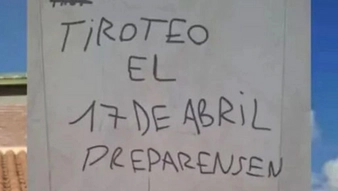 TiROTEO
EL
17 DE ABRIL
PREPARENSEN